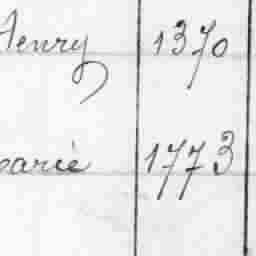 Henry 1370
parié 1773